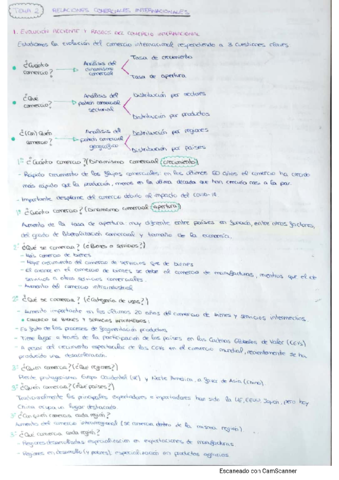 TEMA 2 RELACIONES COMERCIALES INTERNACIONALES
1. EVOLUCIÓN RECIENTE Y RASGOS DEL COMERCIO INTERNACIONAL
Estudiamos la evolución del comercio internacional respondiendo a 3 cuestiones claves.
¿Cuánto comercio? Análisis del dinamismo comercial
Tasa de crecimiento
Tasa de apertura
¿Qué comercio? Análisis del patrón comercial sectorial
Distribución por sectores
Distribución por productos
¿(Con) Quién comercio? Análisis del patrón comercial geográfico
Distribución por regiones
Distribución por países
1º ¿Cuánto comercio? (Dinamismo comercial crecimiento)
- Rápido crecimiento de los flujos comerciales en los últimos 60 años el comercio ha crecido
más rápido que la producción, menos en la última década que han crecido a la par
- Importante desplome del comercio debido al impacto del covid-19
1º ¿Cuánto comercio? (Dinamismo comercial apertura)
Aumento de la tasa de apertura muy diferente entre países en función, entre otros factores,
del grado de liberalización comercial y tamaño de la economía.
2º ¿Qué se comercia? (¿Bienes o servicios?)
- Más comercio de bienes
- Mayor crecimiento del comercio de servicios que de bienes
- El crecimiento en el comercio de bienes se debe al comercio de manufacturas, mientras que el de
servicios a otros servicios comerciales.
- Aumento del comercio intraindustrial
2º ¿Qué se comercia? (¿Categoría de uso?)
- Aumento importante en los últimos 20 años del comercio de bienes y servicios intermedios
- Comercio de bienes y servicios intermedios:
- Es fruto de los procesos de fragmentación productiva
- Tiene lugar a través de la participación de los países en las Cadenas Globales de Valor (CGVs)
- A pesar del crecimiento espectacular de las CGVs en el comercio mundial, recientemente se ha
producido una desaceleración
3º ¿Quién comercia? (¿Qué regiones?)
Fuerte protagonismo Europa Occidental (UE) y Norte América a favor de Asia (China).
3º ¿Quién comercia? (¿Qué países?)
Tradicionalmente los principales exportadores e importadores han sido la UE, EEUU, Japón pero hoy
China ocupa un lugar destacado
3º ¿Con quién comercia cada región?
Aumento del comercio intrarregional (se comercia dentro de la misma región).
3º ¿Qué comercia cada región?
- Regiones desarrolladas especialización en exportaciones de manufacturas
- Regiones en desarrollo especialización en productos
Escaneado con CamScanner